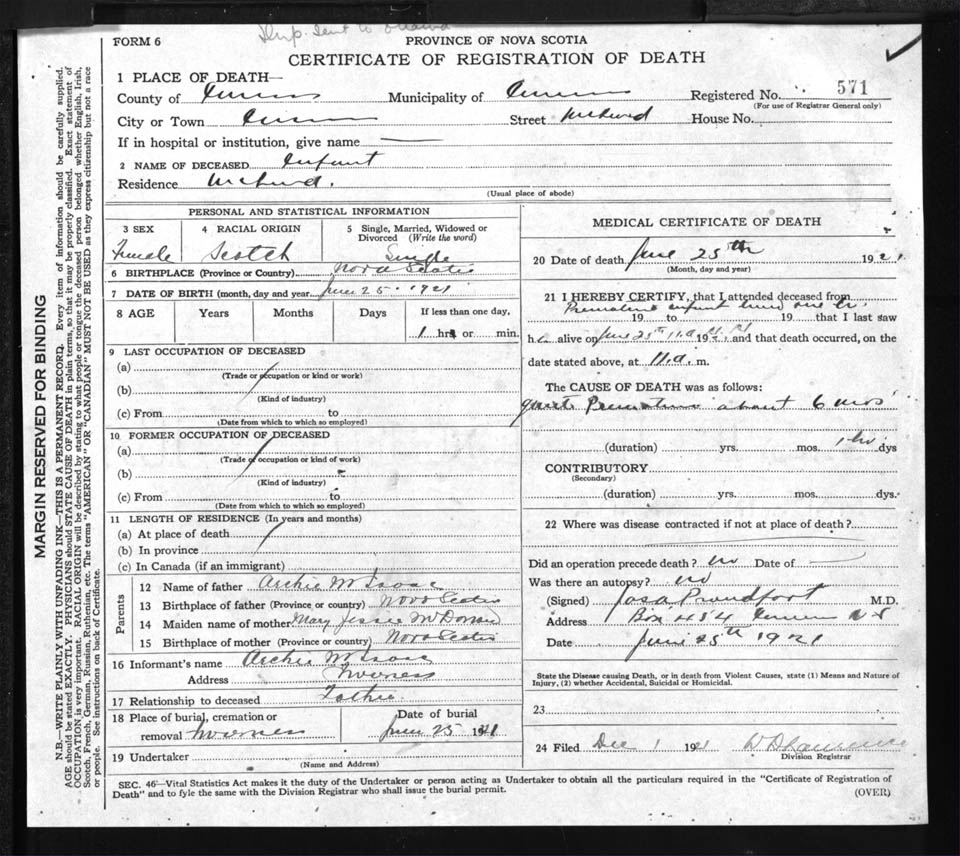 Dup. sent to Ottawa
FORM 6
PROVINCE OF NOVA SCOTIA
CERTIFICATE OF REGISTRATION OF DEATH
1 PLACE OF DEATH—
County of Inverness Municipality of Inverness Registered No. 571
(For use of Registrar General only)
City or Town Inverness Street House No.
If in hospital or institution, give name
2 NAME OF DECEASED Infant
Residence
(Usual place of abode)
PERSONAL AND STATISTICAL INFORMATION
3 SEX 4 RACIAL ORIGIN 5 Single, Married, Widowed or Divorced (Write the word)
Female Scotch Single
6 BIRTHPLACE (Province or Country) Nova Scotia
7 DATE OF BIRTH (month, day and year) June 25 1921
8 AGE Years Months Days If less than one day,
1 hrs or min.
9 LAST OCCUPATION OF DECEASED
(a)
(Trade or occupation or kind or work)
(b)
(Kind of industry)
(c) From to
(Date from which to which so employed)
10 FORMER OCCUPATION OF DECEASED
(a)
(Trade of occupation or kind of work)
(b)
(Kind of industry)
(c) From to
(Date from which to which so employed)
11 LENGTH OF RESIDENCE (In years and months)
(a) At place of death
(b) In province
(c) In Canada (if an immigrant)
Parents
12 Name of father Archie McIsaac
13 Birthplace of father (Province or country) Nova Scotia
14 Maiden name of mother Mary Jessie
15 Birthplace of mother (Province or country) Nova Scotia
16 Informant's name Archie McIsaac
Address Inverness
17 Relationship to deceased Father
18 Place of burial, cremation or removal Inverness
Date of burial June 25 1921
19 Undertaker
(Name and Address)
MEDICAL CERTIFICATE OF DEATH
20 Date of death June 25th 1921
(Month, day and year)
21 I HEREBY CERTIFY, that I attended deceased from
Premature infant lived one hr.
19 to 19 that I last saw
h alive on June 25th 11.a 1921, and that death occurred, on the
date stated above, at 11.a. m.
The CAUSE OF DEATH was as follows:
Premature about 6 mos
(duration) yrs. mos. 1 hr dys
CONTRIBUTORY
(Secondary)
(duration) yrs. mos. dys.
22 Where was disease contracted if not at place of death?
Did an operation precede death? no Date of
Was there an autopsy? no
(Signed) Jas A Proudfoot M.D.
Address Box 454 Inverness N S
Date June 25th 1921
State the Disease causing Death, or in death from Violent Causes, state (1) Means and Nature of Injury, (2) whether Accidental, Suicidal or Homicidal.
23
24 Filed Dec 1 1921 W D Lawrence
Division Registrar
SEC. 46—Vital Statistics Act makes it the duty of the Undertaker or person acting as Undertaker to obtain all the particulars required in the "Certificate of Registration of
Death" and to fyle the same with the Division Registrar who shall issue the burial permit.
(OVER)
MARGIN RESERVED FOR BINDING
N.B.—WRITE PLAINLY WITH UNFADING INK—THIS IS A PERMANENT RECORD. Every item of information should be carefully supplied.
AGE should be stated EXACTLY. PHYSICIANS should STATE CAUSE OF DEATH in plain terms, so that it may be properly classified. Exact statement of
OCCUPATION is very important. RACIAL ORIGIN will be described by stating to what people or tongue the deceased person belonged whether English, Irish,
Scotch, French, German, Russian, Ruthenian, etc. The terms "AMERICAN" OR "CANADIAN" MUST NOT BE USED as they express citizenship but not a race
or people. See instructions on back of Certificate.